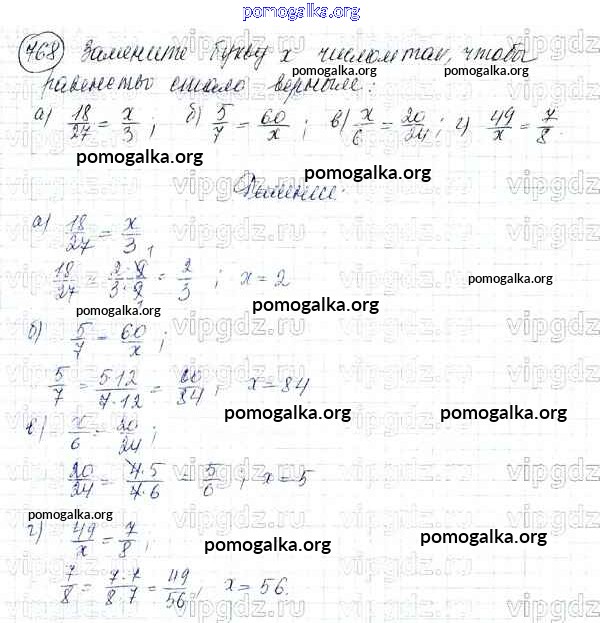 pomogalka.org
768 Замените букву х числом так, чтобы
равенство стало верным:
а) 18/27 = х/3; б) 5/7 = 60/х; в) х/6 = 20/24; г) 49/х = 7/8.
pomogalka.org pomogalka.org
vipgdz.ru
Решение.
pomogalka.org
а) 18/27 = х/3;
18/27 = 2·9/3·9 = 2/3; х = 2
pomogalka.org
pomogalka.org pomogalka.org
б) 5/7 = 60/х;
5/7 = 5·12/7·12 = 60/84; х = 84
pomogalka.org pomogalka.org
в) х/6 = 20/24;
20/24 = 4·5/4·6 = 5/6; х = 5
pomogalka.org
г) 49/х = 7/8;
pomogalka.org pomogalka.org
7/8 = 7·7/8·7 = 49/56; х = 56.